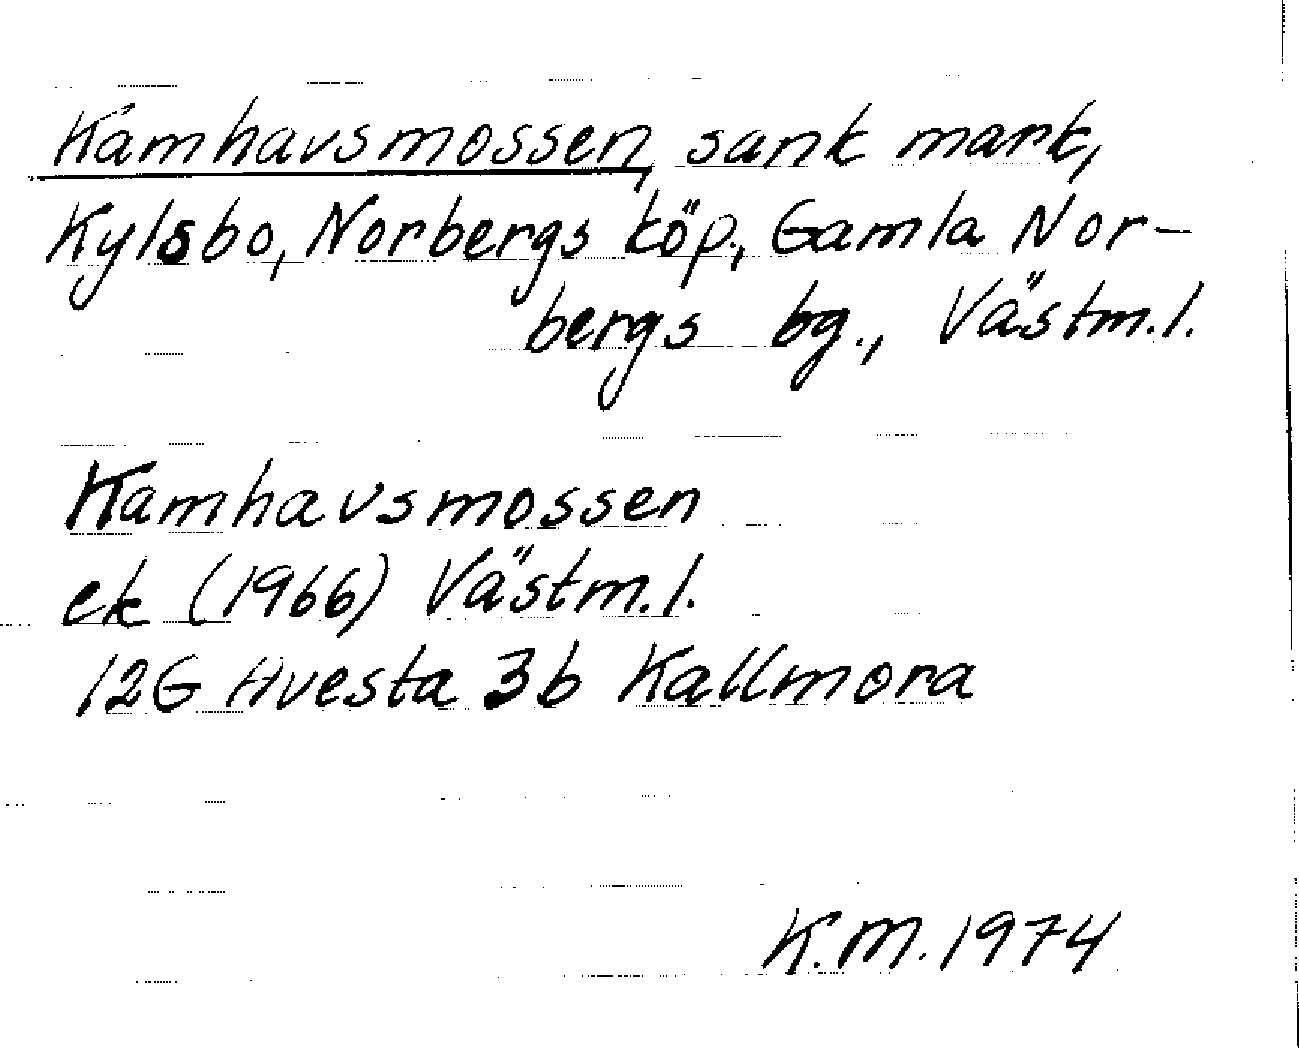 Kamhavsmossen, sank mark,
Kylsbo, Norbergs köp., Gamla Nor-
bergs bg., Västm.l.
Kamhavsmossen
ek (1966) Västm.l.
12G Avesta 3b Kallmora
K.M. 1974